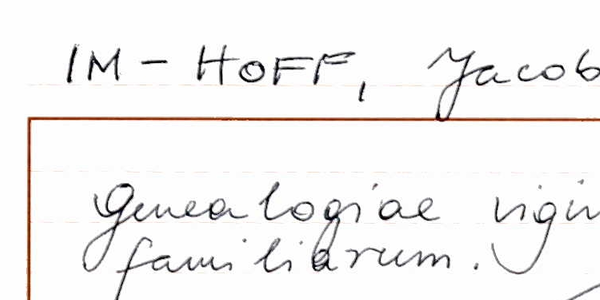 IM-HOFF, Jacob
Genealogiae vigin
familiarum.